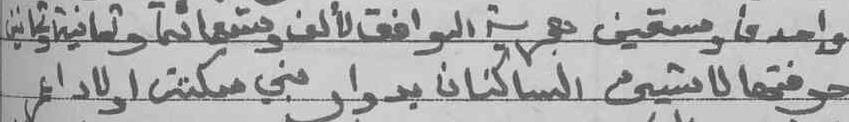 واحد و ستين هجرية الموافق لألف وتسعمائة وثمانية وثمانين
حرفتهما لا شيء الساكنان بدوار بني مكنت اولاد اع